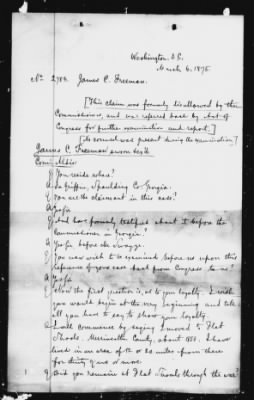 Washington, D.C.
March 6, 1878
No 2784. James C. Freeman.
[This claim was formerly disallowed by these
Commissioners, and was referred back by Act of
Congress for further examination and report.]
[No counsel was present during the examination]
James C. Freeman sworn
Q You reside where?
A In Griffin, Spaulding Co Georgia.
Q You are the claimant in this case?
A Yes sir
Q And have formerly testified about it before the
Commissioner in Georgia?
A Yes sir before
Q You now wish to be examined before us upon this
reference of your case back from Congress to us?
A Yes sir
Q Now the first question is, as to your loyalty. I wish
you would begin at the very beginning and tell
all you have to say to show your loyalty.
A I will commence by saying I moved to Flat
Shoals, Merriwether County, about I have
lived in an area of 15 or 20 miles from there
for thirty years or more.
Q Did you remain at Flat Shoals through the war